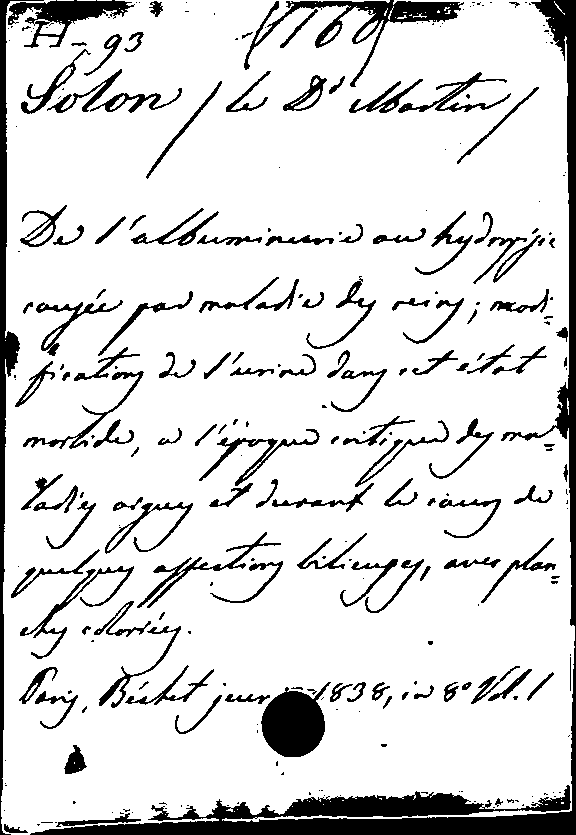 H-93 (1760)
Solon / le Dr Martin /
De l'albuminurie ou hydropisie
causée par maladie des reins; modi-
fications de l'urine dans cet état
morbide, a l'époque critique des ma=
ladies aigues et durant le cours de
quelques affections bilieuses, avec plan=
ches coloriées.
Paris, Béchet jeune 1838, in 8° Vol. 1